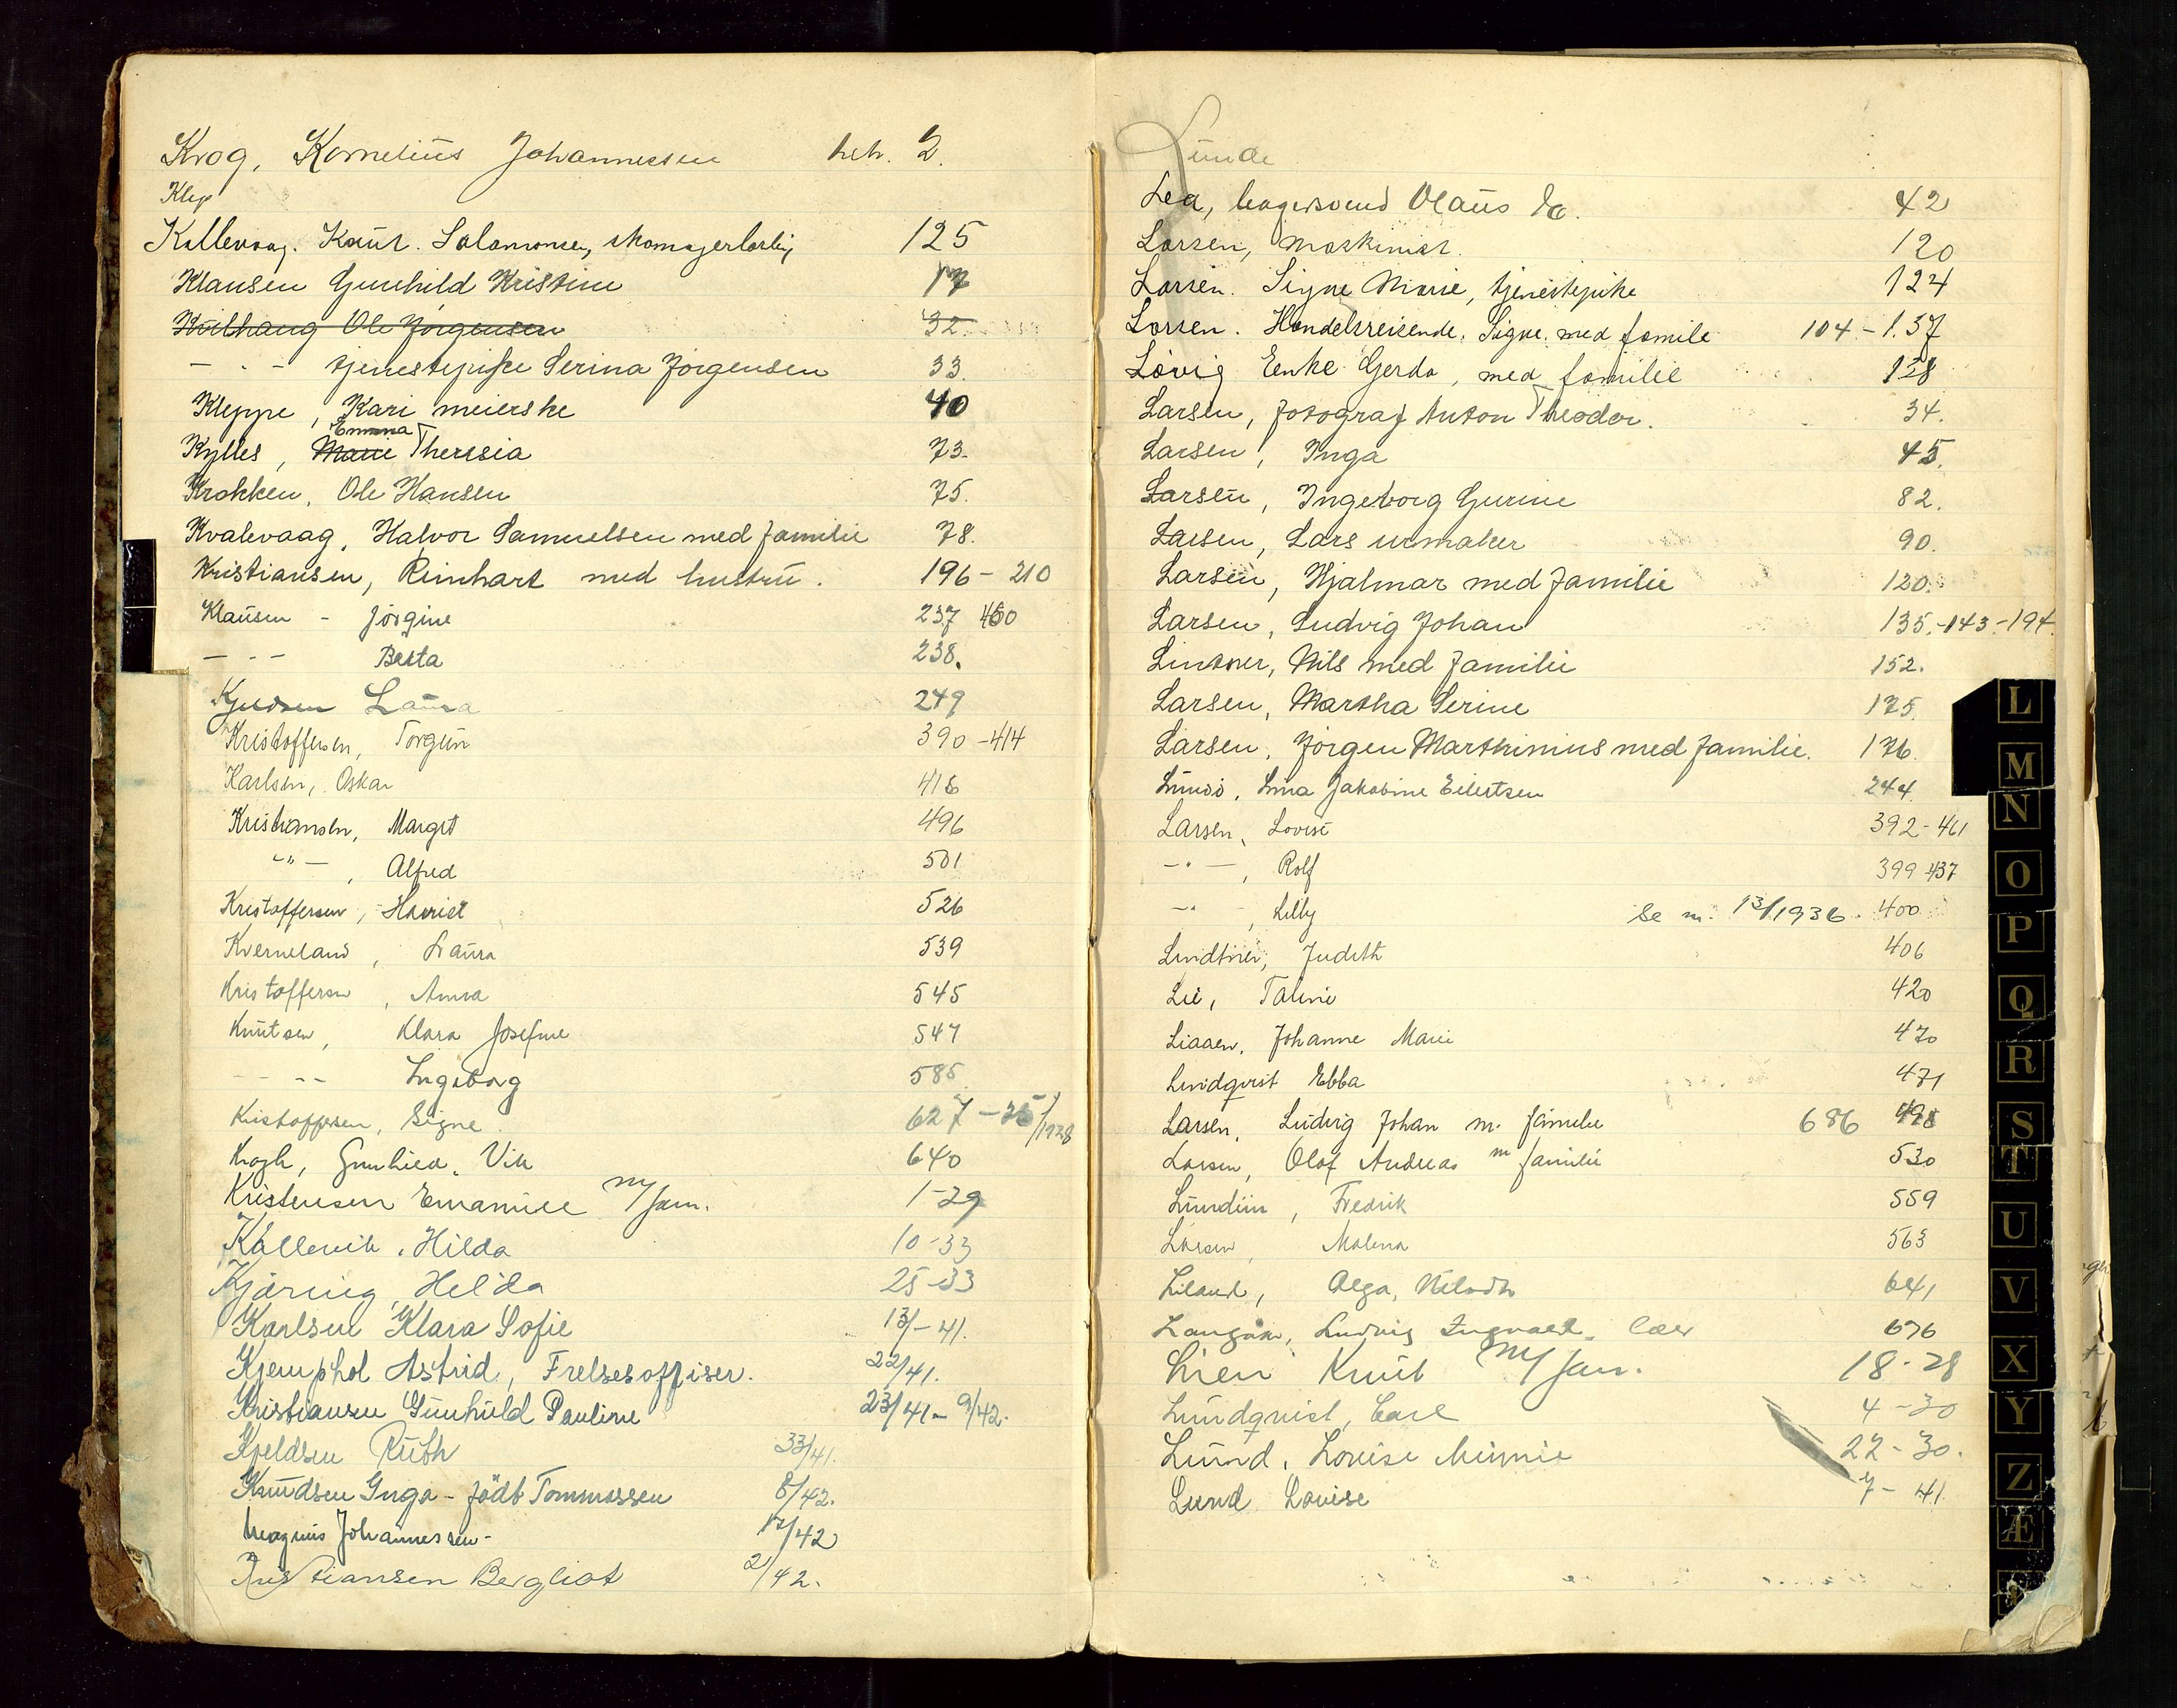 Krog, Kornelius Johannessen 2.
Klep
Kallevaag. Knut. Salomonsen, 125
Klausen Gunhild Kristine 17
Kvilhaug Ole Jørgensen 32.
- - - tjenestepike Serina Jørgensen 33.
Kleppe, Kari meierske 40
Emma
Kylles, Marie Theresia 73.
Krokken, Ole Hansen 75.
Kvalevaag, Halvor Samuelsen med familie 78.
Kristiansen, Reinhart med hustru. 196 - 210
Klausen - Jørgine 237 460
- - - Berta 238.
Laura 249
Kristoffersen, Torgun 390 - 414
Karlsen, Oskar 418
Kristiansen, Margit 496
-"-, Alfred 501
Kristoffersen, Harriet 526
Kverneland, Laura 539
Kristoffersen, Anna 545
Knutsen, Klara Josefine 547
- - - - Ingeborg 585
Kristoffersen, Signe 627 - 25/1928
Krogh, Gunhild, Vik 640
Kristensen Emanuel m/fam. 1-29
Kallevik, Hilda 10-33
Kjäring, Helda 25-33
Karlsen Klara Sofie 13/-41.
Kjemphol Astrid, Frelsesoffiser. 22/41.
Kristiansen Gunhild Pauline 23/41 - 9/42-
Kjeldsen Ruth 33/41.
Knudsen Inga - född Tommassen 8/42.
Magnus Johannessen - 12/42
Kristiansen Bergliot 2/42.
Lunde
Lea, Olaus 42
Larsen, Maskinist. 120
Larsen. Signe Marie, tjenestepike 124
Larsen. Handelsreisende. Signe. med familie 104 - 137
Lövig Enke Gerda, med familie 128
Larsen, fotograf Anton Theodor. 34.
Larsen, Inga 45.
Larsen, Ingeborg Gurine 82.
Larsen, Lars urmaker 90.
Larsen, Hjalmar med familie 120.
Larsen, Ludvig Johan 135.-143-194.
Lintner, Nils med familie 152.
Larsen, Martha Serine 175.
Larsen, Jørgen Marthinius med familie. 176.
Lina Jakobine Eilertsen 244.
Larsen, Lovise 392 - 461
-"-, Rolf 399 437
-"-, Lilly se m. 13/1936. 400
Lindtner, Judith 406
Lie, Taline 420
Liaaen, Johanne Marie 470
Lindqvist Ebba 471
Larsen, Ludvig Johan m. familie 686 498
Larsen, Olaf Andreas m familie 530
Lundin, Fredrik 559
Larsen, Malena 563
Liland, Olga, 641
Langåker, Ludvig Ingvald, 676
Lien Knut m/fam. 18-28
Lundqvist, Carl 4-30
Lund, Louise Minnie 22-30.
Lund Louise 7-41
L
M
N
O
P
Q
R
S
T
U
V
X
Y
Z
Æ
Ø